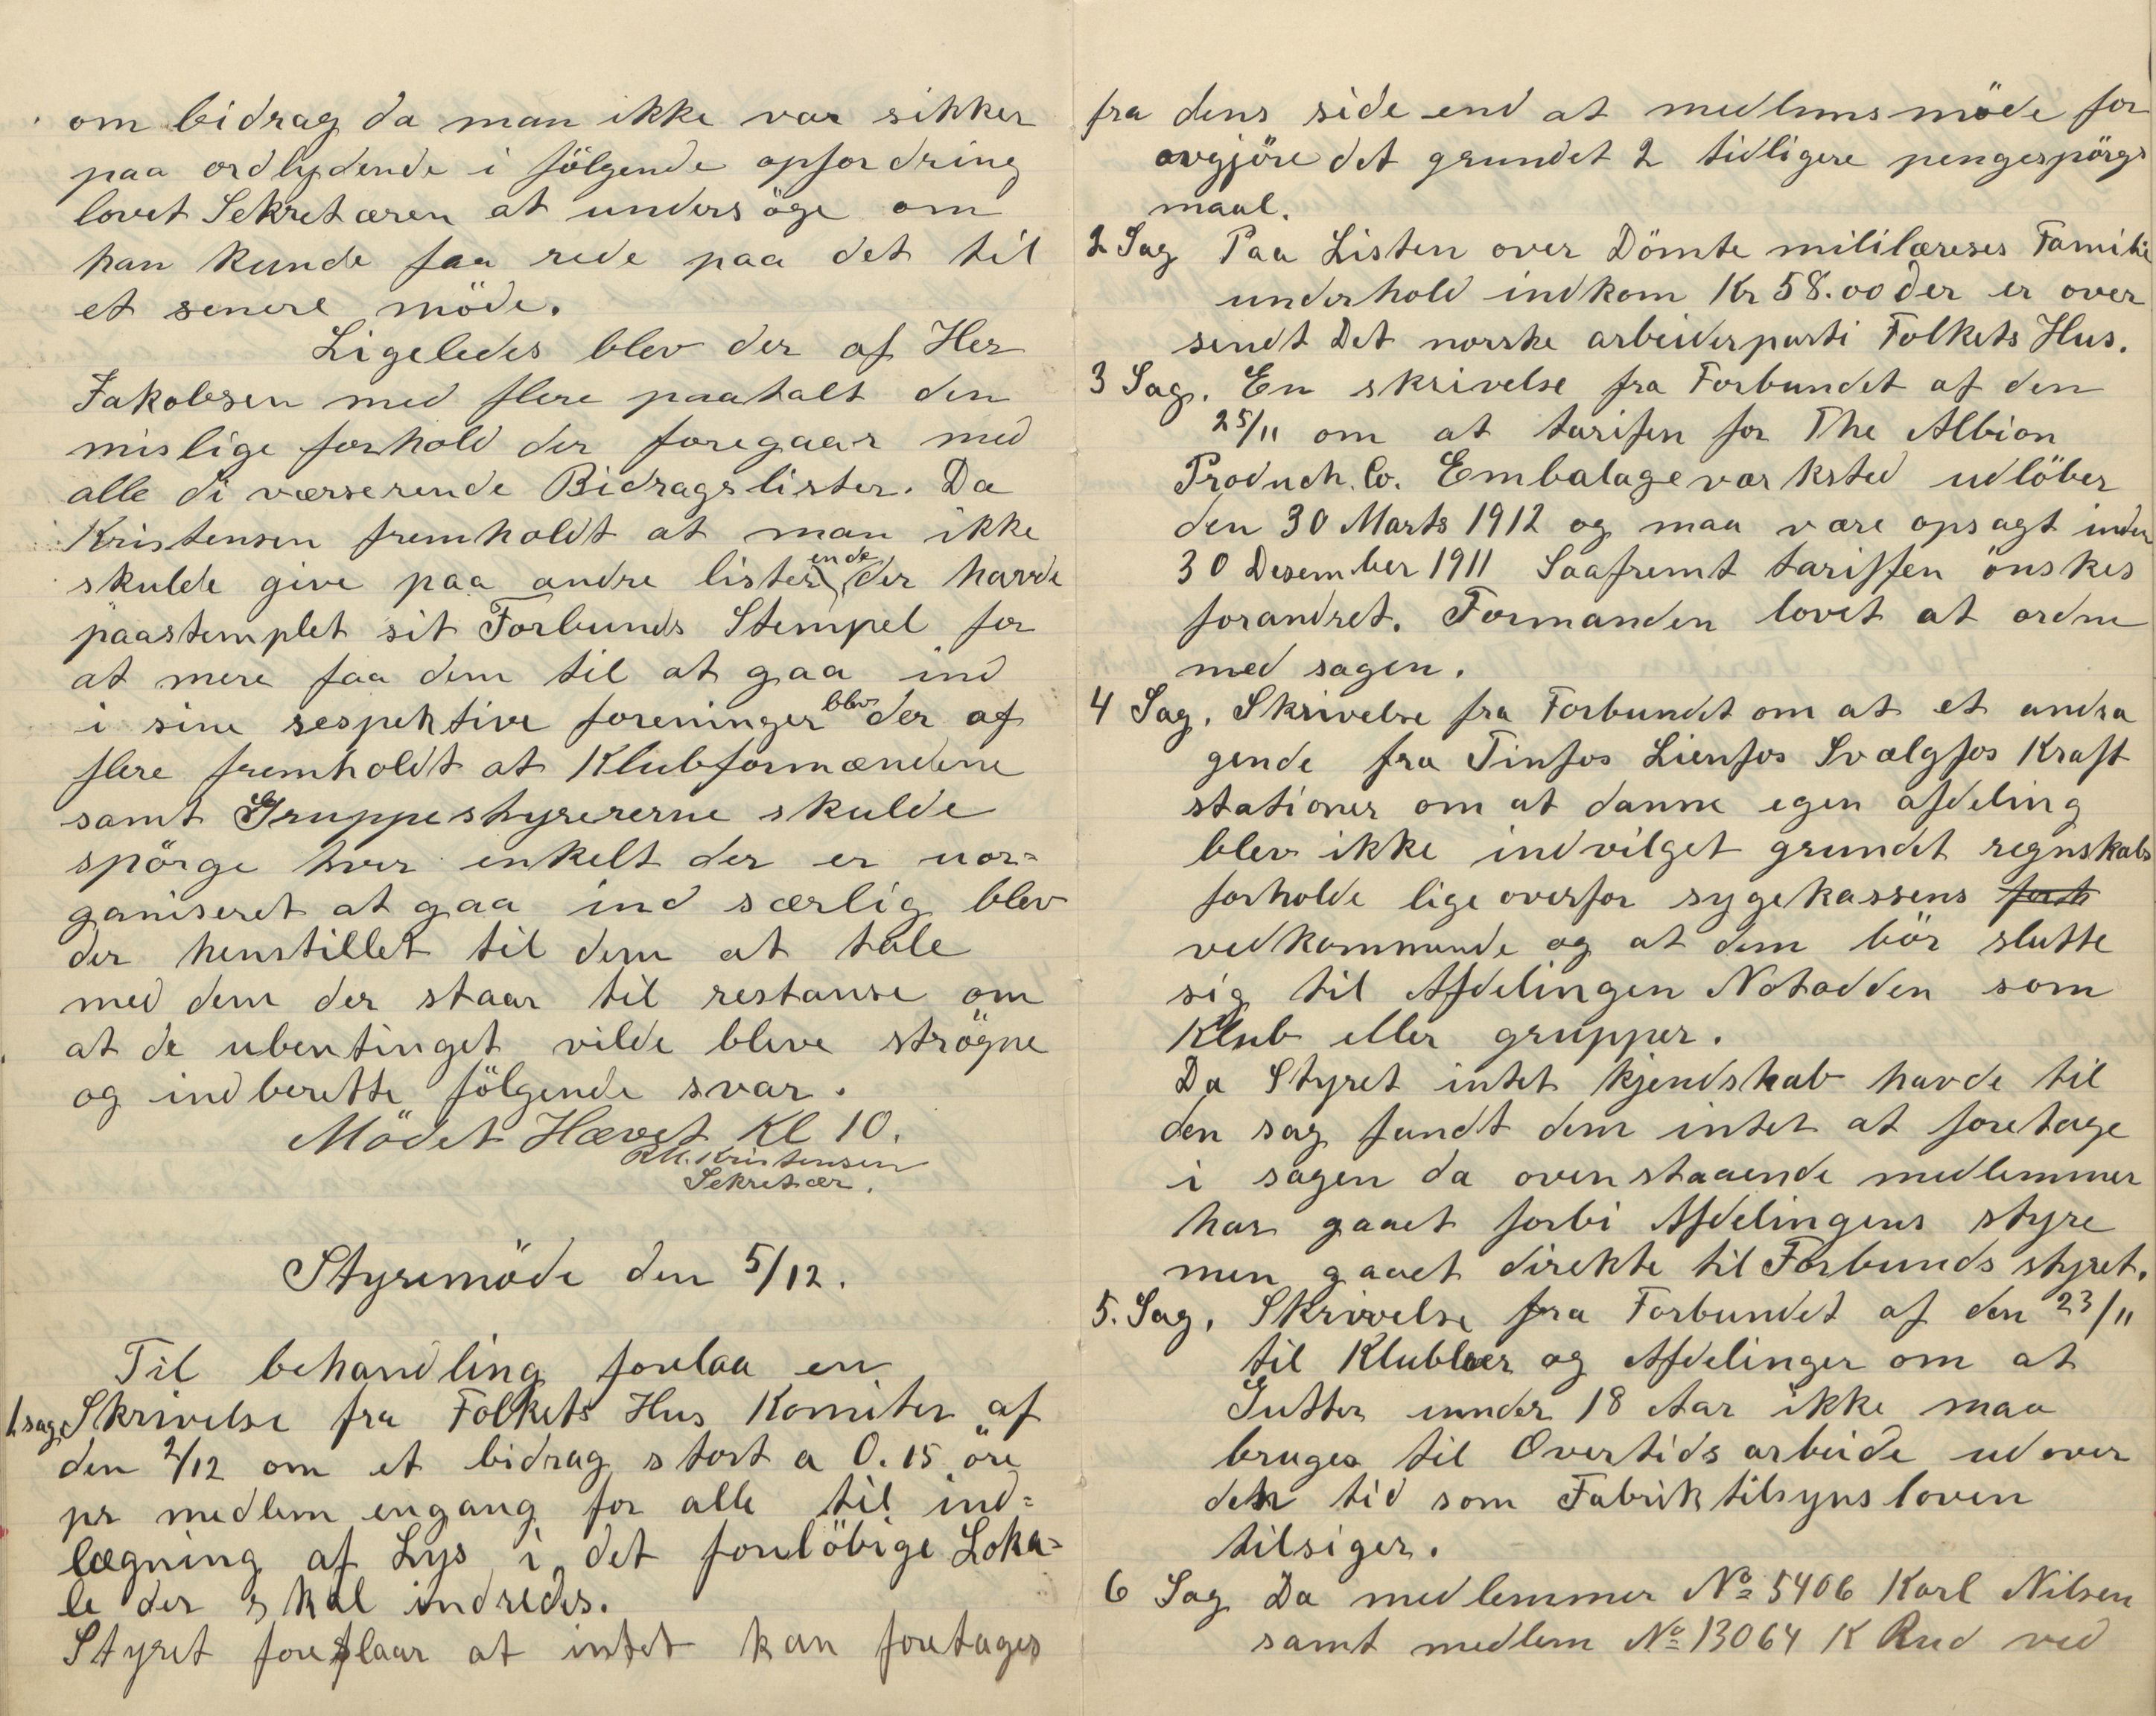 om bidrag da man ikke var sikker
paa ordlydende i fölgende opfordring
lovet Sekretæren at undersöge om
han kunde faa rede paa det til
et senere möde.
Ligeledes blev der af Her
Jakobsen med flere paatalt den
mislige forhold der foregaar med
alle di værserende Bidragslister. Da
Kristensen fremholdt at man ikke
skulde give paa andre lister ende der havde
paastemplet sit Forbunds Stempel for
at mere faa dem til at gaa ind
i sine respektive foreninger blev der af
flere fremholdt at Klubformændene
samt Gruppestyrererne skulde
spörge hver enkelt der er uor=
ganiseret at gaa ind særlig blev
der henstillet til dem at tale
med dem der staar til restanse om
at de ubentinget vilde bleve strögne
og indberette fölgende svar.
Mödet Hævet Kl 10.
Kristensen
Sekretær.
Styremöde den 5/12.
Til behandling forelaa en
1. sag Skrivelse fra Folkets Hus Komiter af
den 2/12 om et bidrag stort a 0.15 öre
pr medlem engang for alle til ind=
lægning af Lys i det forelöbige Loka=
le der skal indredes.
Styret foreslaar at intet kan foretages
fra dens side end at medlemsmöde for
avgjöre det grundet 2 tidligere pengespörgs
maal.
2 Sag Paa Listen over Dömte mililæreses Familie
underhold indkom Kr 58.00 der er over
sendt Det norske arbeiderparti Folkets Hus.
3 Sag. En skrivelse fra Forbundet af den
25/11 om at tarifen for The Albion
Produch. Co. Embalageværksted udlöber
den 30 Marts 1912 og maa være opsagt inden
30 Desember 1911 Saafremt tariffen önskes
forandret. Formanden lovet at ordne
med sagen.
4 Sag. Skrivelse fra Forbundet om at et andra
gende fra Tinfos Lienfos Svælgfos Kraft
stationer om at danne egen afdeling
blev ikke indvilget grundet regnskabs
forholde lige overfor sygekassens
vedkommende og at dem bör slutte
sig til Afdelingen Notodden som
Klub eller grupper.
Da Styret intet kjendskab havde til
den sag fandt dem intet at foretage
i sagen da ovenstaaende medlemmer
har gaaet forbi Afdelingens styre
men gaaet direkte til Forbunds styret.
5. Sag. Skrivelse fra Forbundet af den 23/11
til Klubber og Afdelinger om at
Gutter under 18 Aar ikke maa
bruges til Overtids arbeide ud over
den tid som Fabriktilsyns loven
tilsiger.
6 Sag Da medlemmer No 5406 Karl Nilsen
samt medlem No 13064 K Rud ved